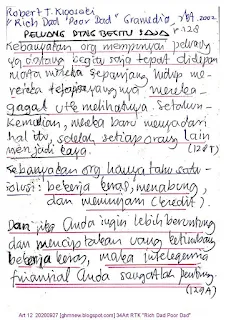 Robert T. Kiyosaki
"Rich Dad Poor Dad" Gramedia, 2002
PELUANG DTNG BEGITU SAJA P.128
Kebanyakan org mempunyai peluang
yg datang begitu saja tepat didepan
mata mereka sepanjang hidup me-
reka tetapi sayangnya mereka
gagal utk melihatnya. Setahun
kemudian, mereka baru menyadari
hal itu, setelah setiap orang lain
menjadi kaya. (128T)
Kebanyakan org hanya tahu satu
solusi: bekerja keras, menabung,
dan meminjam (credit).
Dan jika Anda ingin lebih beruntung
dan menciptakan uang ketimbang
bekerja keras, maka intelegensia
finansial Anda sangatlah penting.
(129A)
Art 12 20200927 [ghmnew.blogspot.com] 34Art RTK "Rich Dad Poor Dad"